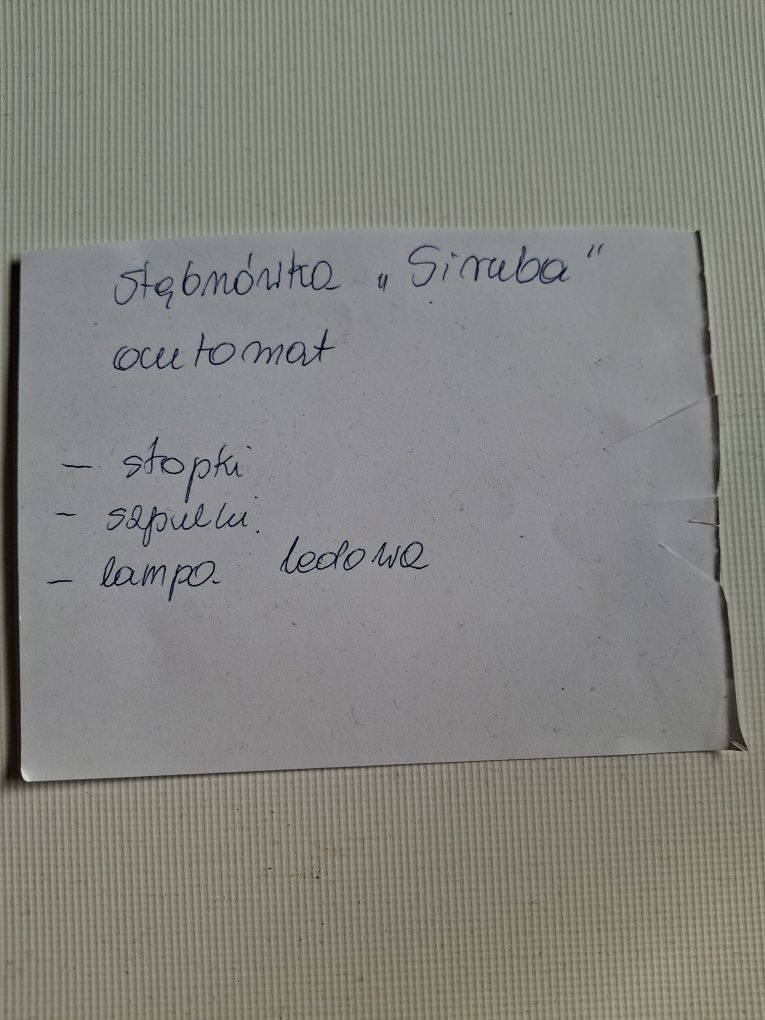 stębnówka „Siruba"
automat
- stopki
- szpulki.
- lampa ledowa